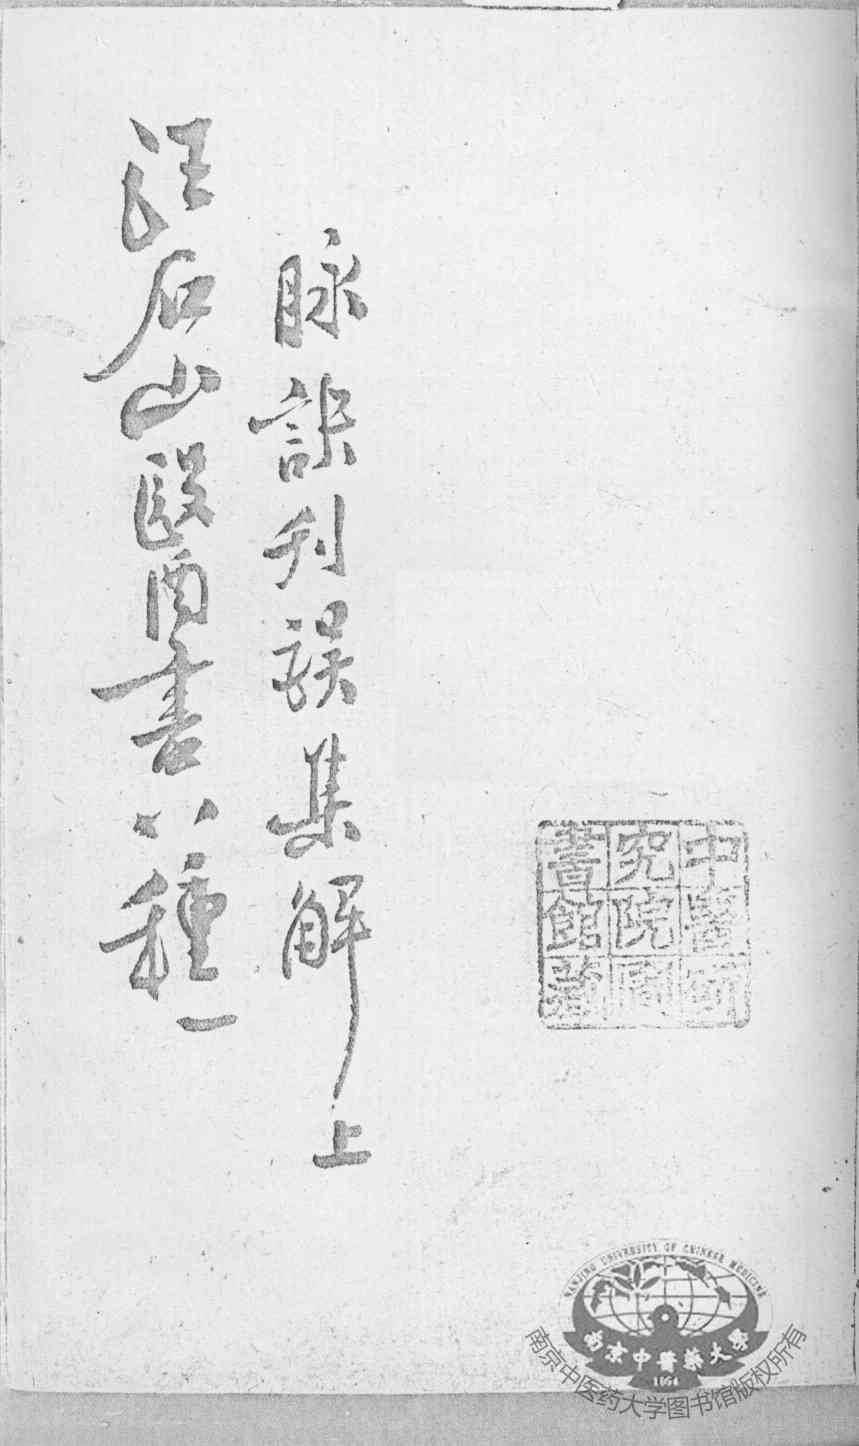 脉訣刊誤集解 上
汪石山醫書八種 一
中醫研
究院圖
書館藏
NANJING UNIVERSITY OF CHINESE MEDICINE
南京中醫藥大學
1954
南京中医药大学图书馆版权所有